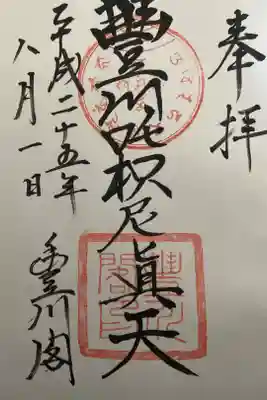 奉拝
豊川吒枳尼眞天
平成二十五年
八月一日
豊川閣